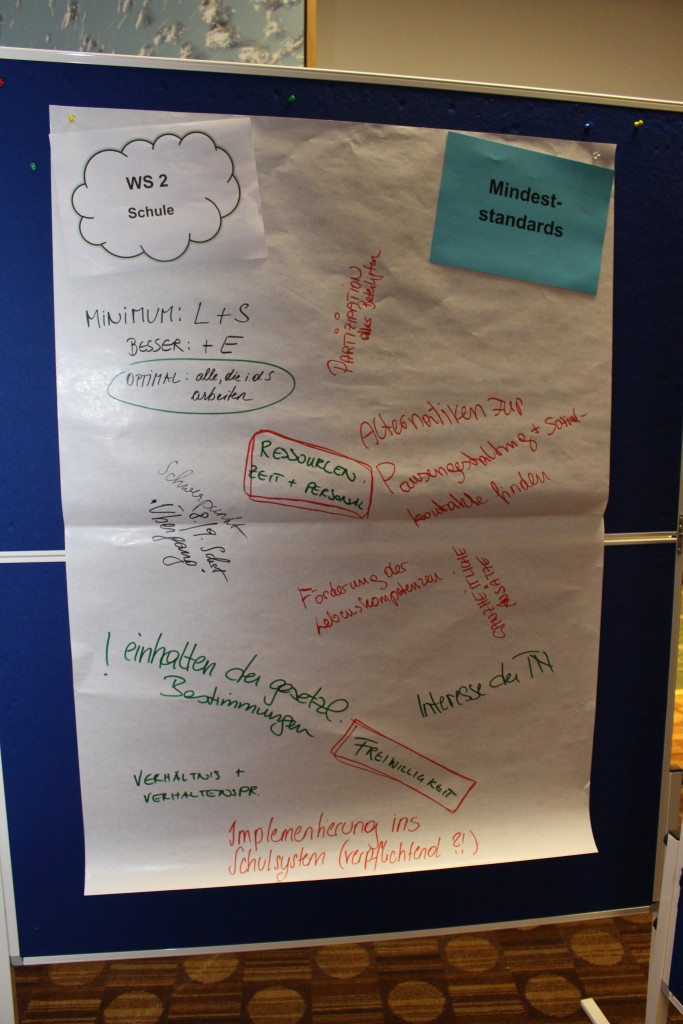 WS 2
Schule
Mindest-
standards
PARTIZIPATION
aller Beteiligten
MINIMUM: L + S
BESSER: + E
OPTIMAL: alle, die i.d.S
arbeiten
Alternativen zur
Pausengestaltung + Sozial-
kontakte finden
RESSOURCEN:
ZEIT + PERSONAL
Schwerpunkt
8./9. Schst
Übergang!
GANZHEITLICHE
ANSÄTZE
Förderung der
Lebenskompetenzen
! einhalten der gesetzl.
Bestimmungen
Interesse der TN
FREIWILLIGKEIT
VERHÄLTNIS +
VERHALTENSPR.
Implementierung ins
Schulsystem (verpflichtend ?!)